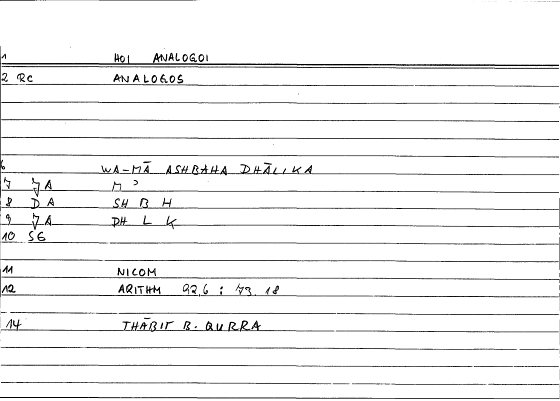 1 HOI ANALOGOI
2 RC ANALOGOS
6 WA-MĀ ASHBAHA DHĀLIKA
7 7A M ʾ
8 DA SH B H
9 7A DH L K
10 SG
11 NICOM
12 ARITHM 92,6 : 73.18
14 THĀBIT B. QURRA